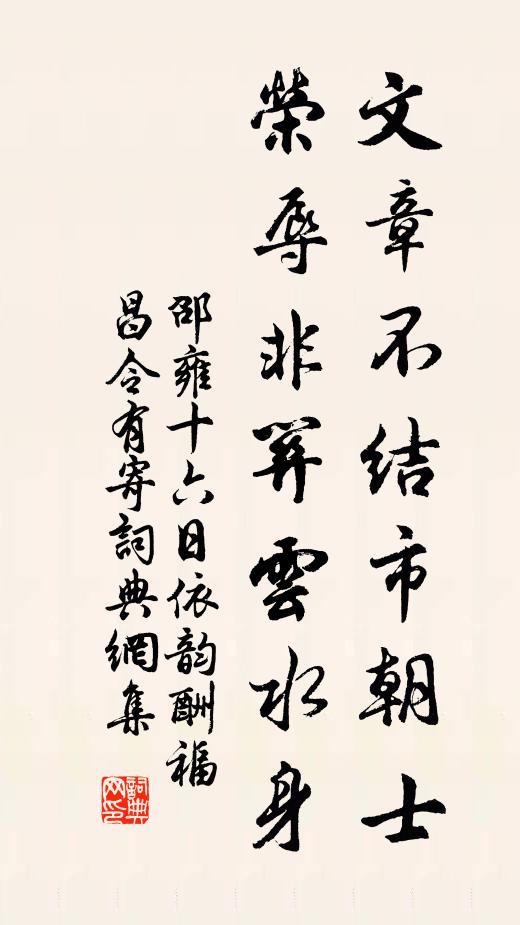 文章不結市朝士
榮辱非關雲水身
邵雍十六日依韵酬福
昌令有寄詞典網集
詞典
网印